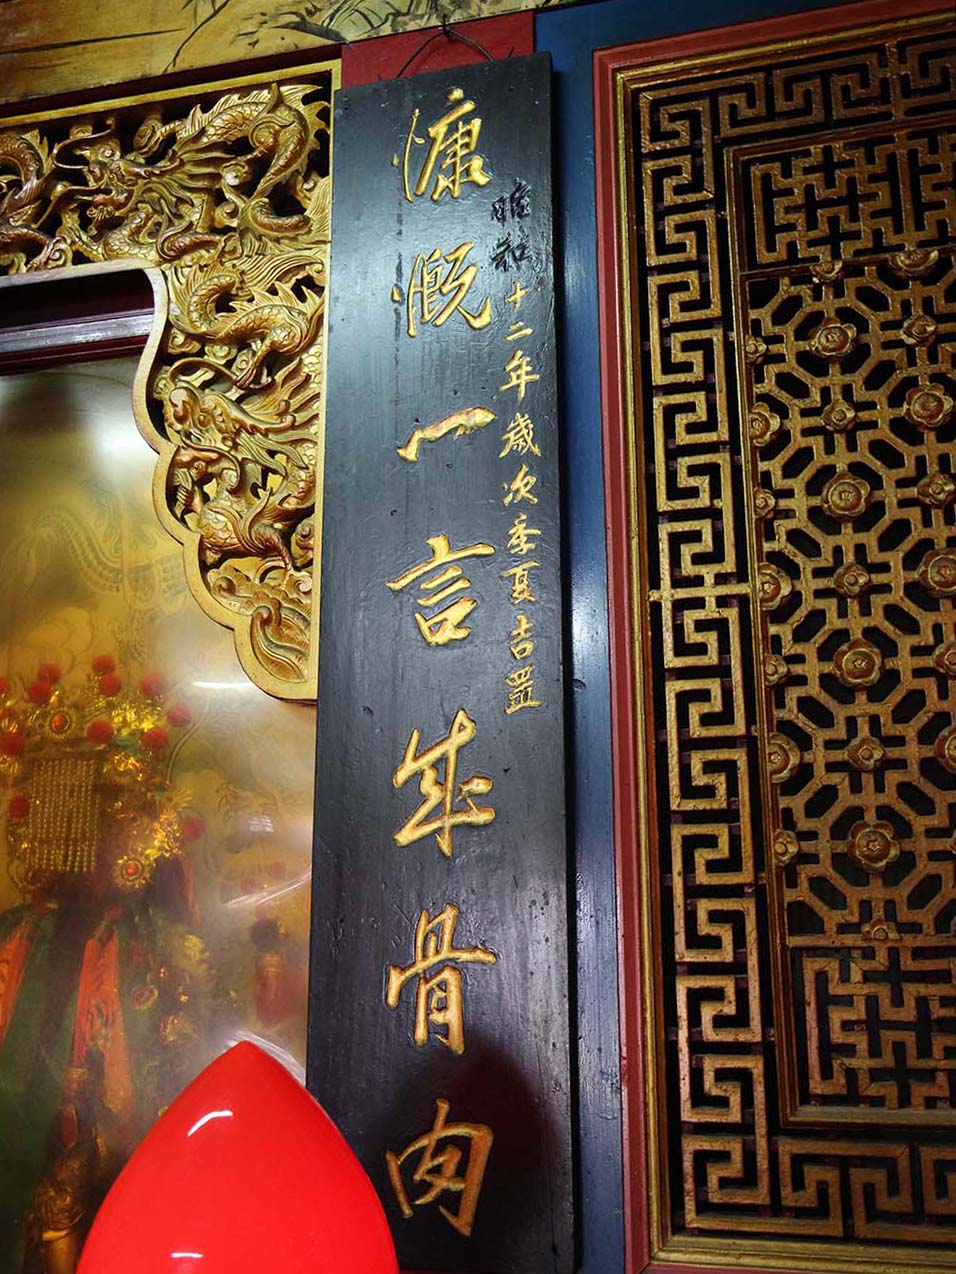 昭和十二年歲次季夏吉置
慷慨一言成骨肉